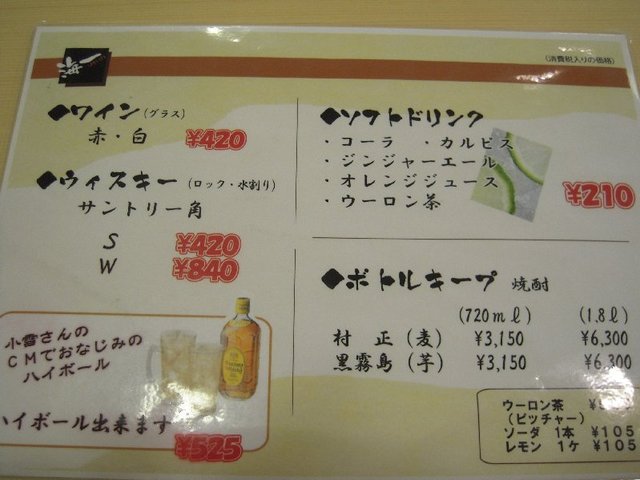 海
(消費税入りの価格)
◆ワイン(グラス)
赤・白 ¥420
◆ウィスキー(ロック・水割り)
サントリー角
S ¥420
W ¥840
小雪さんの
CMでおなじみの
ハイボール
ハイボール出来ます
¥525
◆ソフトドリンク
・コーラ ・カルピス
・ジンジャーエール
・オレンジジュース
・ウーロン茶
¥210
◆ボトルキープ 焼酎
(720ml) (1.8l)
村 正(麦) ¥3,150 ¥6,300
黒霧島(芋) ¥3,150 ¥6,300
ウーロン茶
(ピッチャー)
ソーダ 1本 ¥105
レモン 1ケ ¥105